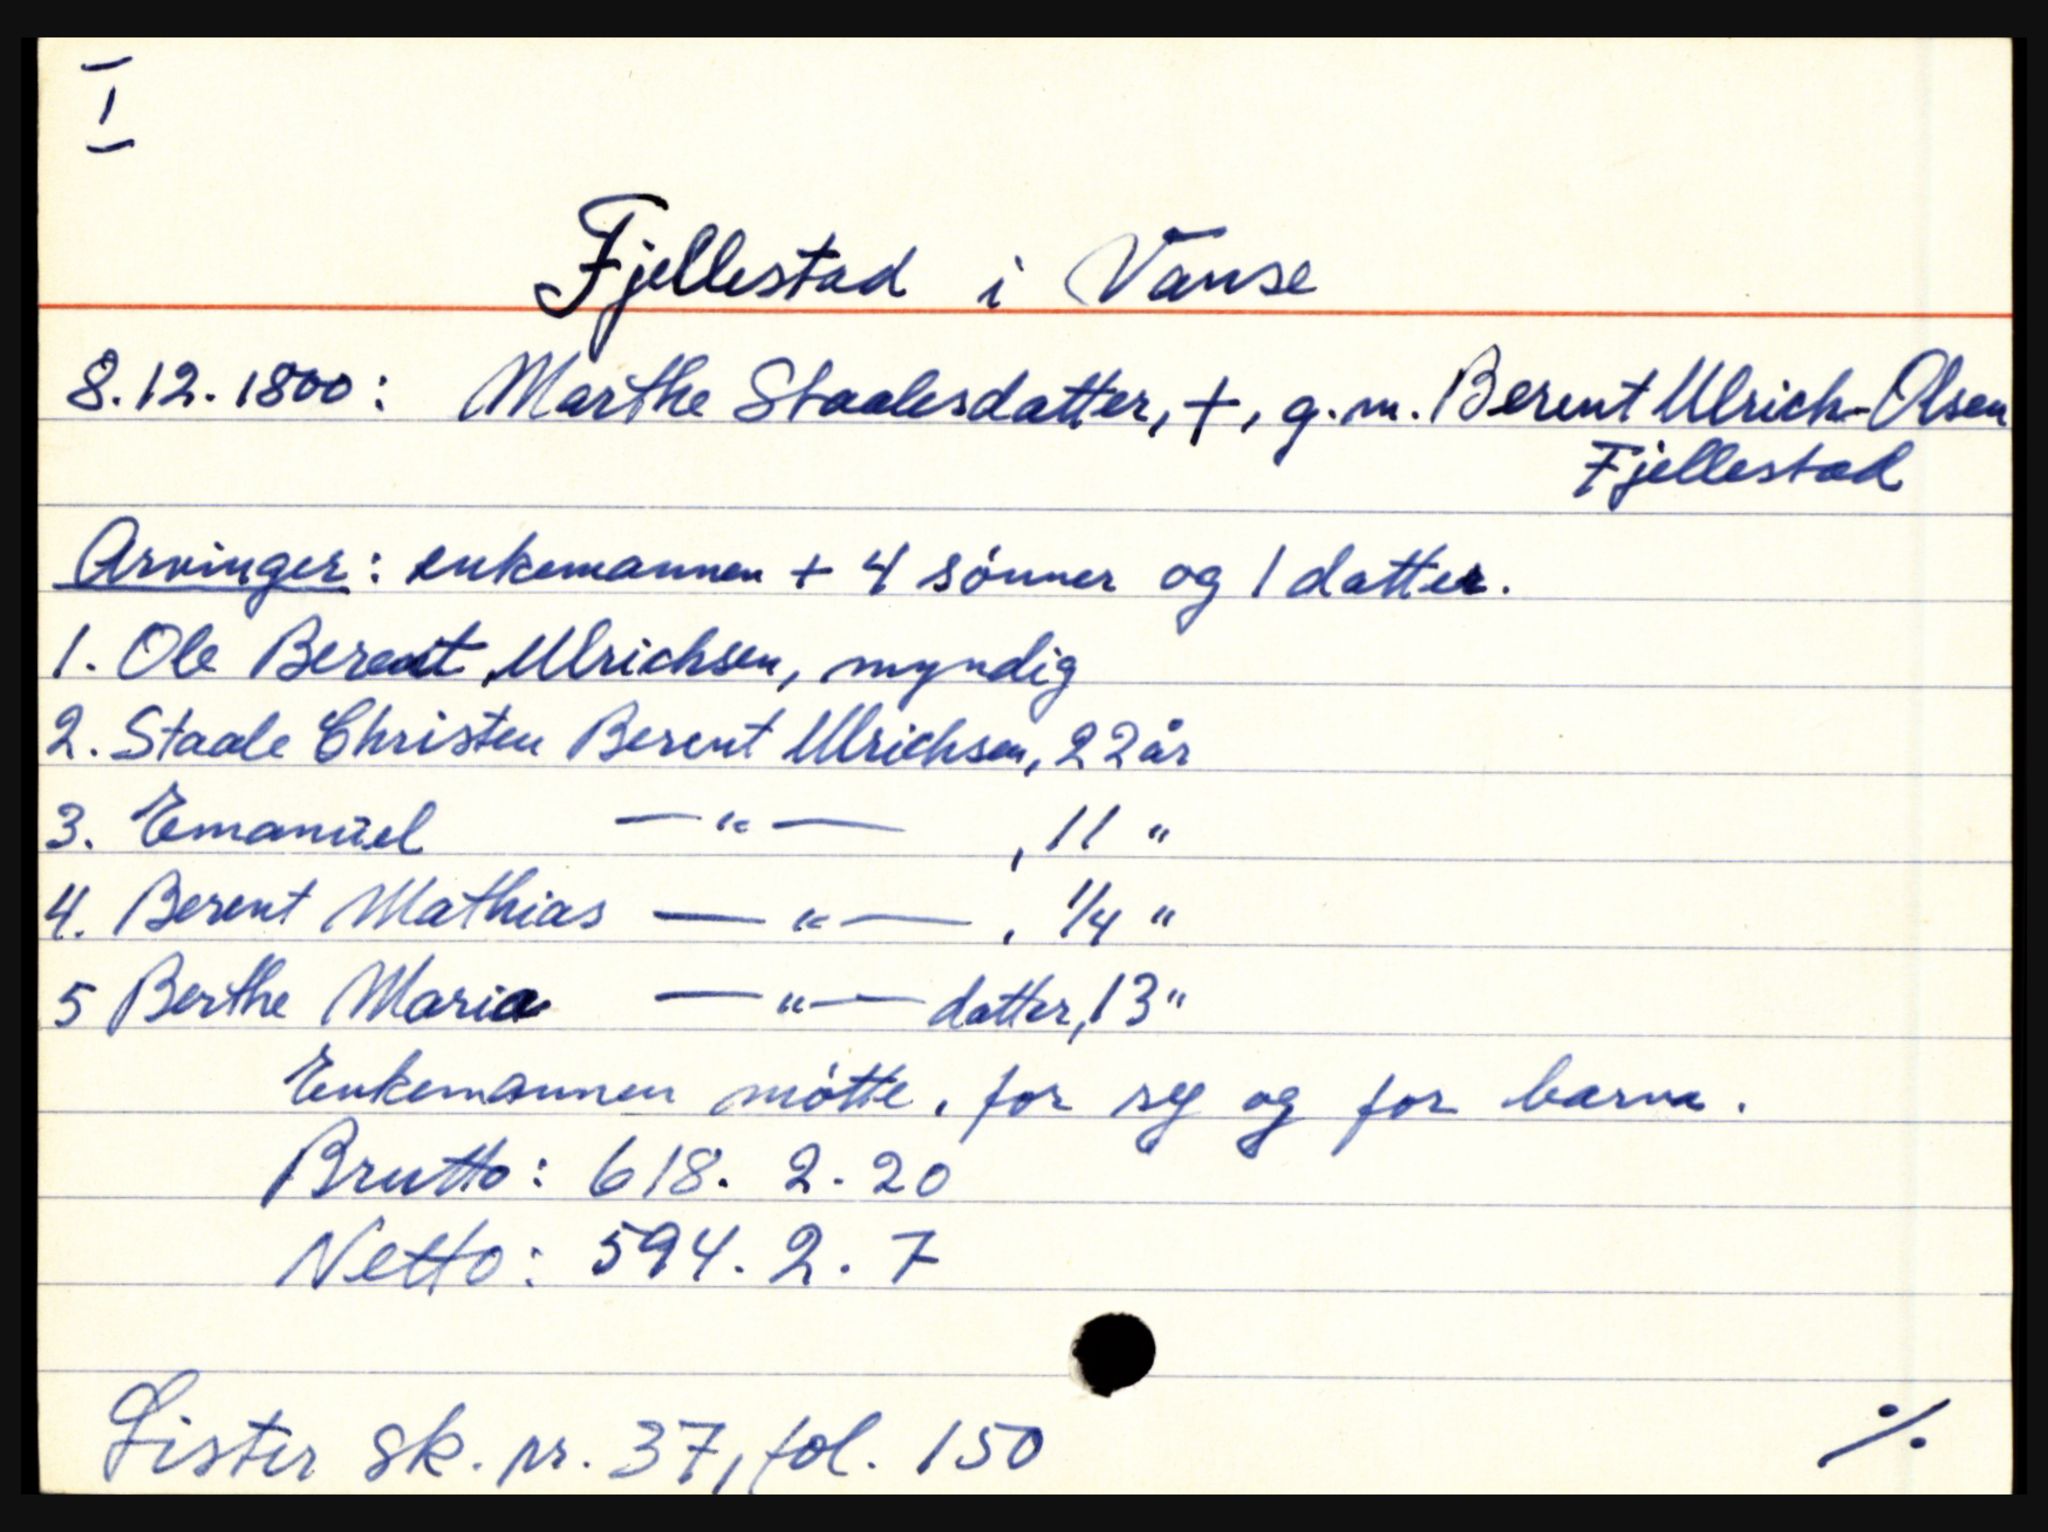 I
Fjellestad i Vanse
8.12.1800: Marthe Staalesdatter, †, g.m. Berent Ulrich Olsen
Fjellestad
Arvinger: enkemannen + 4 sønner og 1 datter.
1. Ole Berent Ulrichsen, myndig
2. Staale Christen Berent Ulrichsen, 22 år
3. Emanuel —"— , 11 "
4. Berent Mathias —"— , 1/4 "
5 Berthe Maria —"— datter, 13 "
Enkemannen møtte, for seg og for barna.
Brutto: 618. 2. 20
Netto: 594. 2. 7
Lister sk. nr. 37, fol. 150
./.